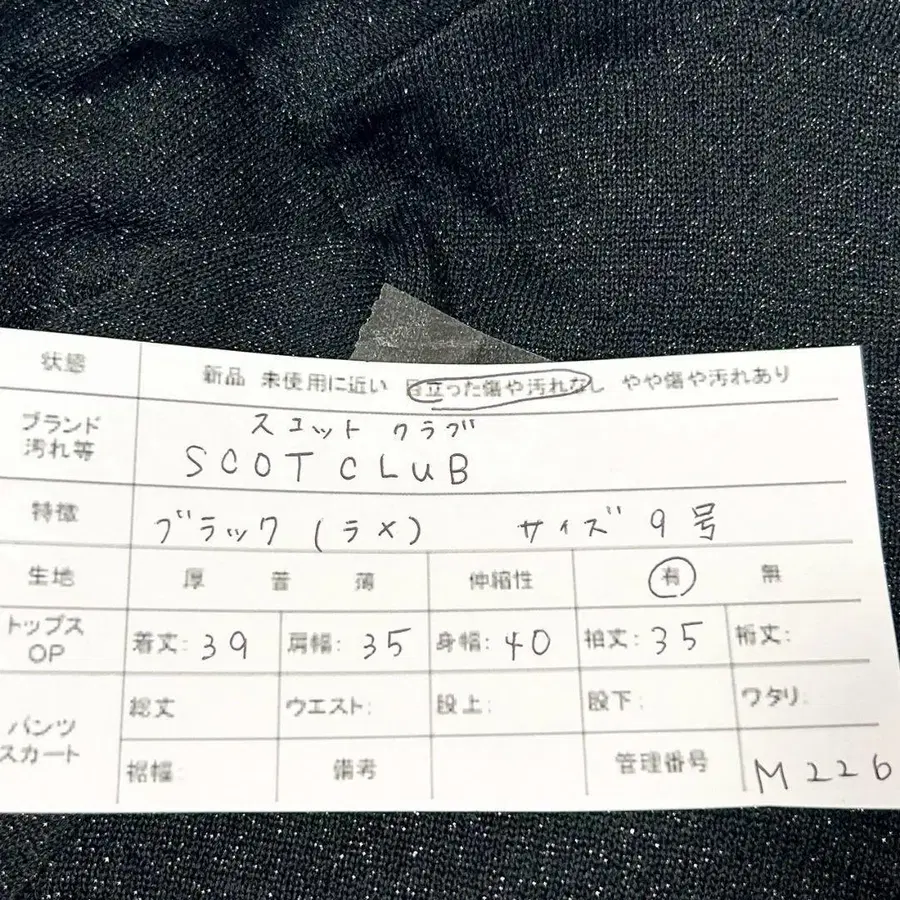 状態 新品 未使用に近い 目立った傷や汚れなし やや傷や汚れあり
ブランド
汚れ等
スコット クラブ
SCOT CLUB
特徴 ブラック (ラメ) サイズ 9 号
生地 厚 普 薄 伸縮性 有 無
トップス
OP
着丈: 39 肩幅: 35 身幅: 40 袖丈: 35 裄丈:
パンツ
スカート
総丈 ウエスト: 股上: 股下: ワタリ:
裾幅: 備考 管理番号 M226